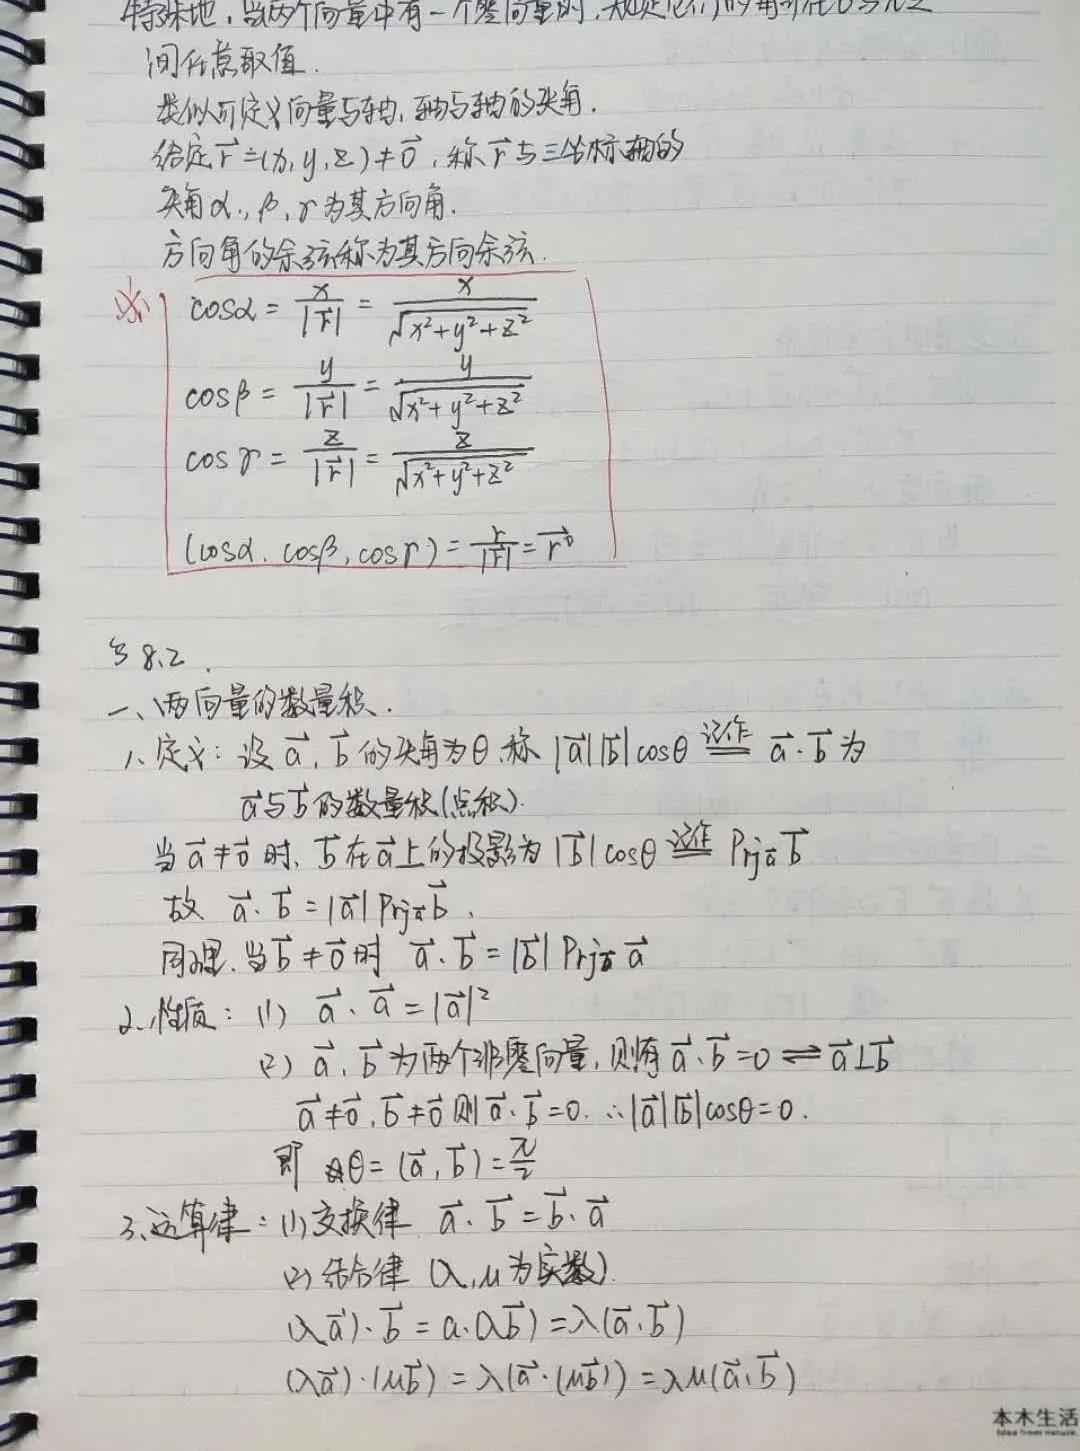 特殊地,当两个向量中有一个零向量时,规定它们的夹角可在0与π之
间任意取值.
类似可定义向量与轴,轴与轴的夹角.
给定r⃗=(x,y,z)≠0⃗,称r⃗与三坐标轴的
夹角α,β,γ为其方向角.
方向角的余弦称为其方向余弦.
※ cosα = x/|r⃗| = x/√(x²+y²+z²)
cosβ = y/|r⃗| = y/√(x²+y²+z²)
cosγ = z/|r⃗| = z/√(x²+y²+z²)
(cosα, cosβ, cosγ) = r/|r⃗| = r⃗⁰
§8.2.
一、两向量的数量积.
1、定义: 设a⃗,b⃗的夹角为θ,称|a⃗||b⃗|cosθ 记作 a⃗·b⃗为
a⃗与b⃗的数量积(点积).
当a⃗≠0⃗时,b⃗在a⃗上的投影为|b⃗|cosθ 记作 Prj_a⃗ b⃗
故 a⃗·b⃗=|a⃗|Prj_a⃗ b⃗,
同理.当b⃗≠0⃗时 a⃗·b⃗=|b⃗|Prj_b⃗ a⃗
2、性质: (1) a⃗·a⃗=|a⃗|²
(2) a⃗,b⃗为两个非零向量,则有a⃗·b⃗=0⇌a⃗⊥b⃗
a⃗≠0⃗,b⃗≠0⃗则a⃗·b⃗=0.∴|a⃗||b⃗|cosθ=0.
即 θ=(a⃗,b⃗)=π/2
3、运算律: (1)交换律 a⃗·b⃗=b⃗·a⃗
(2)结合律 (λ,μ为实数).
(λa⃗)·b⃗=a·(λb⃗)=λ(a⃗·b⃗)
(λa⃗)·(μb⃗)=λ(a⃗·(μb⃗))=λμ(a⃗·b⃗)
本木生活
Idea from nature.